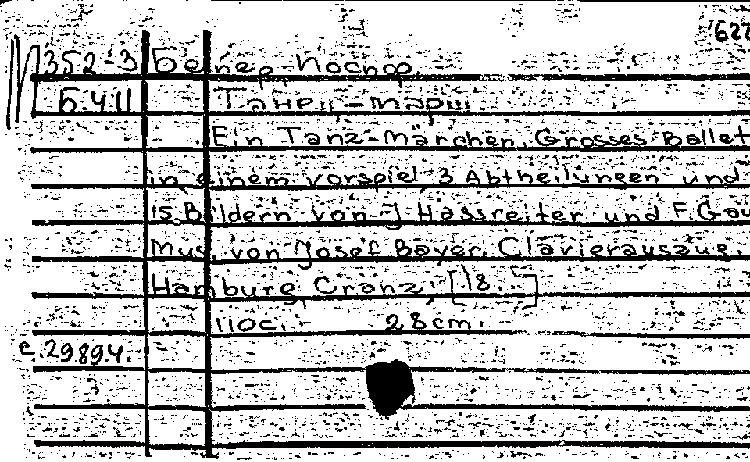 627
352-3 Бейер, Йосиф.
Б.411 Танец-марш.
Ein Tanz-Märchen. Grosses Ballet
in einem Vorspiel, 3 Abtheilungen und
15 Bildern von J. Hassreiter und F. Gau
Mus. von Josef Bayer. Clavierauszug.
Hamburg, Cranz, [18..]
110 с. 28 cm.
с. 29894.